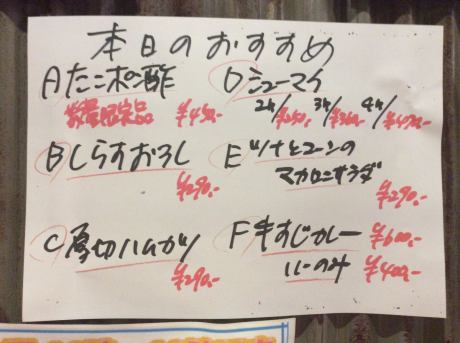 本日のおすすめ
Aたこポン酢
数量限定品 ¥450.-
Bしらすおろし
¥290.-
C厚切ハムカツ
¥290.-
Dシューマイ
2ケ/¥250.- 3ケ/¥360.- 4ケ/¥470.-
Eツナとコーンの
マカロニサラダ
¥290.-
F牛すじカレー ¥600.-
ルーのみ ¥400.-